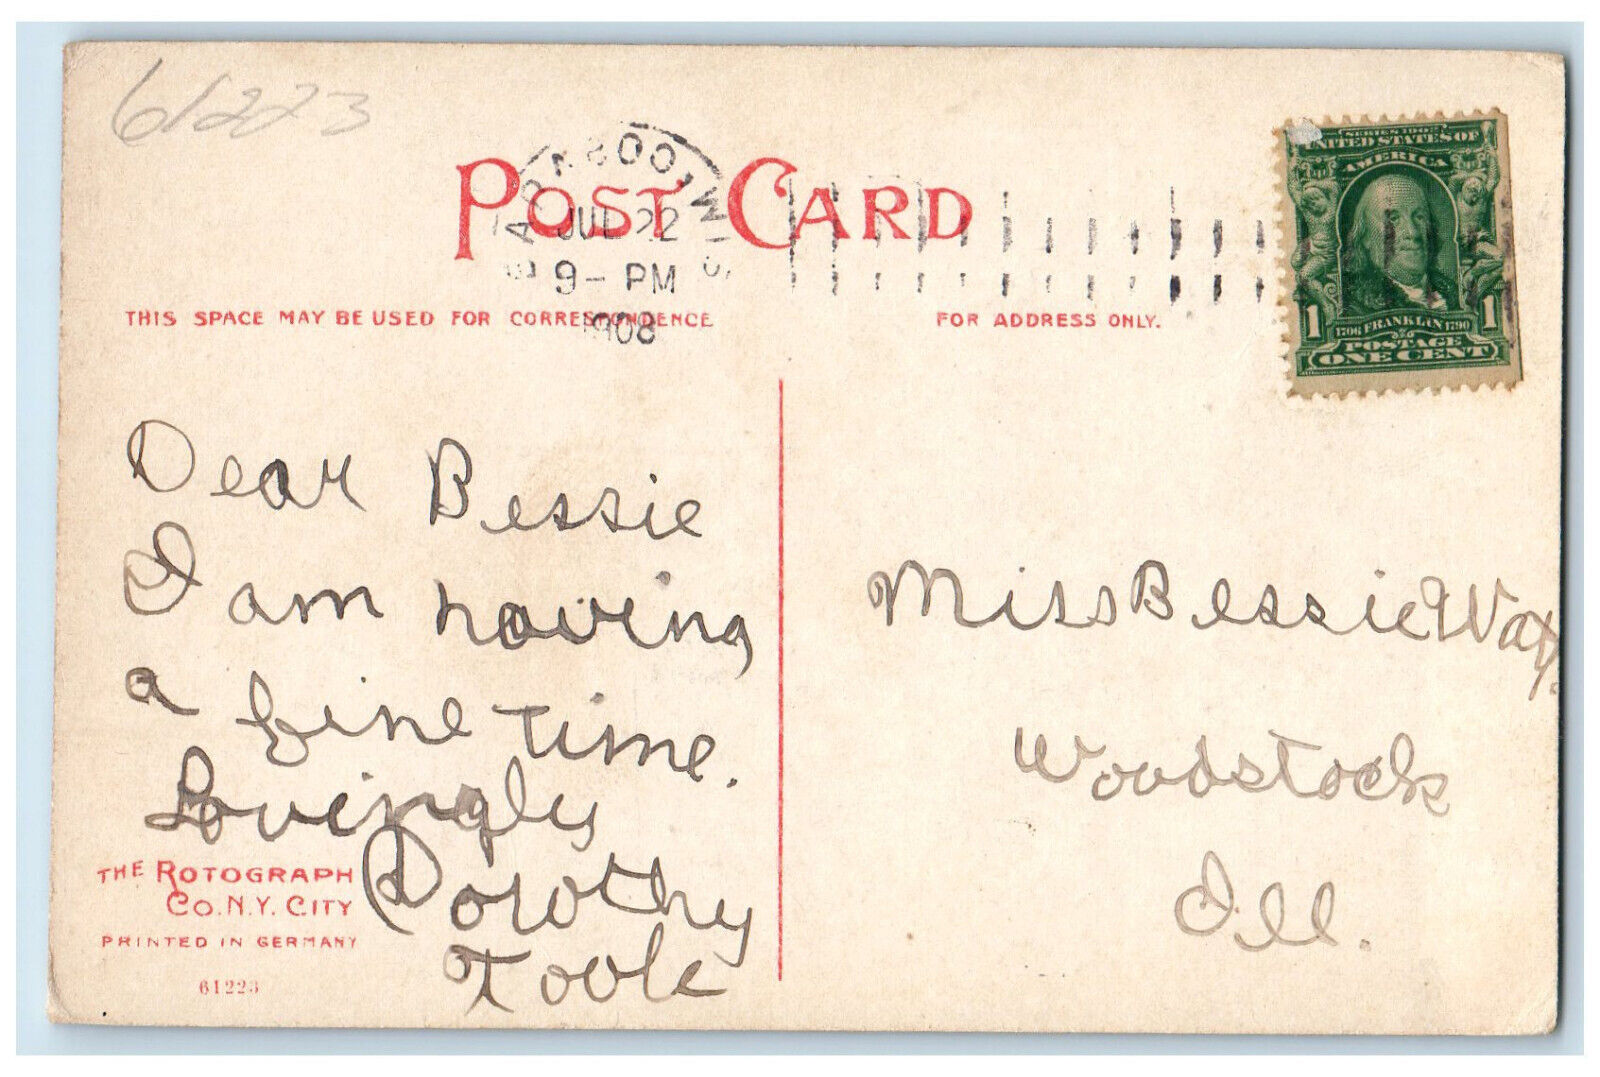 61223
BARABOO, WIS.
JUL 22
9 - PM
1908
POST CARD
SERIES 1902
UNITED STATES OF
AMERICA
1 1706 FRANKLIN 1790 1
POSTAGE
ONE CENT
THIS SPACE MAY BE USED FOR CORRESPONDENCE
FOR ADDRESS ONLY.
Dear Bessie
I am having
a fine time.
Lovingly
Dorothy
Toole
Miss Bessie Way.
Woodstock
Ill.
THE ROTOGRAPH
CO. N.Y. CITY
PRINTED IN GERMANY
61223